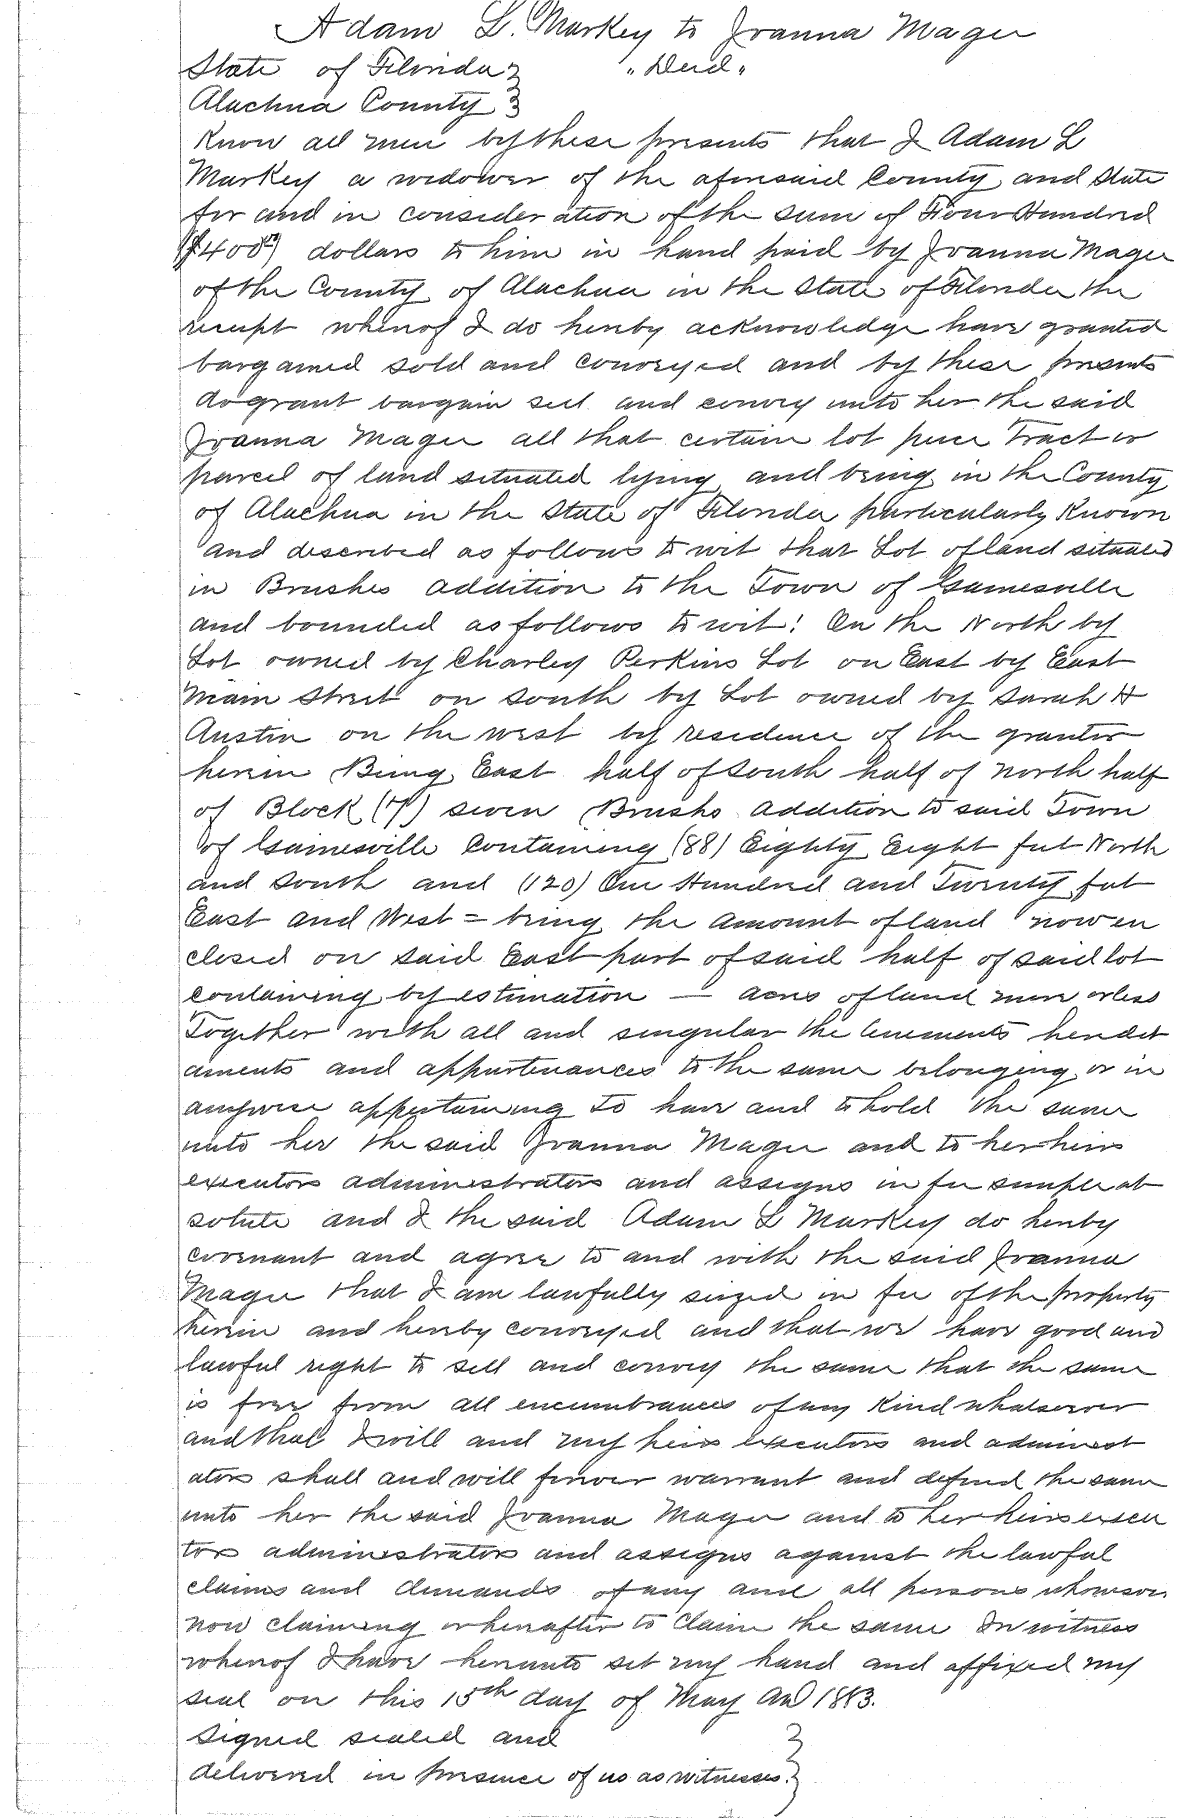 Adam L. Markey to Joanna Magee
State of Florida } "Deed"
Alachua County }
Know all men by these presents that I Adam L
Markey a widower of the aforesaid County and State
for and in consideration of the sum of Four Hundred
($400⁰⁰) dollars to him in hand paid by Joanna Magee
of the County of Alachua in the State of Florida the
receipt whereof I do hereby acknowledge have granted
bargained sold and conveyed and by these presents
do grant bargain sell and convey unto her the said
Joanna Magee all that certain lot piece Tract or
parcel of land situated lying and being in the County
of Alachua in the State of Florida particularly Known
and described as follows to wit that Lot of land situated
in Brushes addition to the Town of Gainesville
and bounded as follows to wit: On the North by
Lot owned by Charley Perkins Lot on East by East
Main Street on South by Lot owned by Sarah H
Austin on the west by residence of the grantor
herein Being East half of South half of North half
of Block (7) seven Brushs addition to said Town
of Gainesville Containing (88) Eighty Eight feet North
and South and (120) One Hundred and Twenty feet
East and West = being the amount of land now en
closed on said East part of said half of said lot
containing by estimation — acres of land more or less
Together with all and singular the tenements heredit
aments and appurtenances to the same belonging or in
anywise appertaining To have and to hold the same
unto her the said Joanna Magee and to her heirs
executors administrators and assigns in fee simple ab
solute and I the said Adam L Markey do hereby
covenant and agree to and with the said Joanna
Magee that I am lawfully seized in fee of the property
herein and hereby conveyed and that we have good and
lawful right to sell and convey the same that the same
is free from all encumbrances of any Kind whatsoever
and that I will and my heirs executors and administ
ators shall and will forever warrant and defend the same
unto her the said Joanna Magee and to her heirs execu
tors administrators and assigns against the lawful
claims and demands of any and all persons whomsoever
now claiming or hereafter to Claim the same In witness
whereof I have hereunto set my hand and affixed my
seal on this 15th day of May AD 1883.
Signed sealed and }
delivered in presence of us as witnesses. }